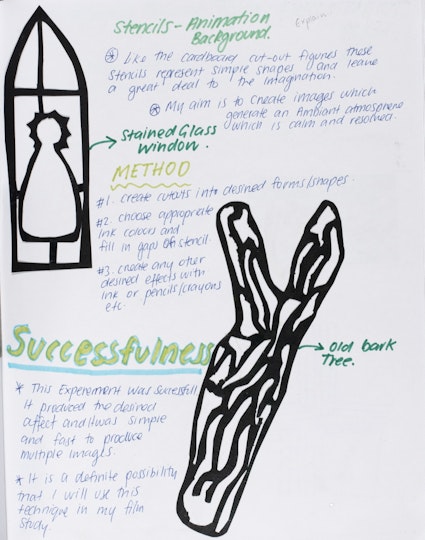 Stencils - Animation
Background.
Explain
* Like the cardboard cut-out figures these
stencils represent simple shapes and leave
a great deal to the imagination.
* My aim is to create images which
generate an Ambiant atmosphere
which is calm and resolved.
Stained Glass
window.
METHOD
#1. create cutouts into desired forms/shapes.
#2. choose appropriate
ink colours and
fill in gaps of stencil.
#3. create any other
desired effects with
ink or pencils/crayons
etc.
Successfulness
old bark
Tree.
* This Experement was Successfull
It produced the desired
affect and it was simple
and fast to produce
multiple images.
* It is a definite possibility
that I will use this
technique in my film
study.